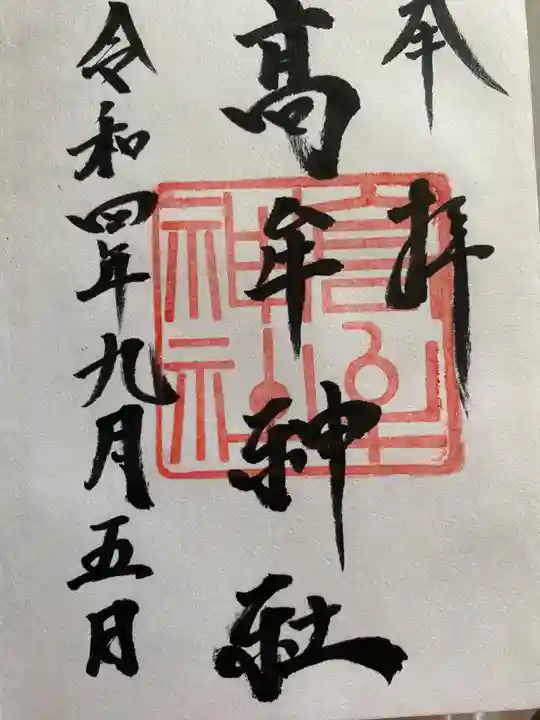 奉拝
高牟神社
高牟
神社
令和四年九月五日